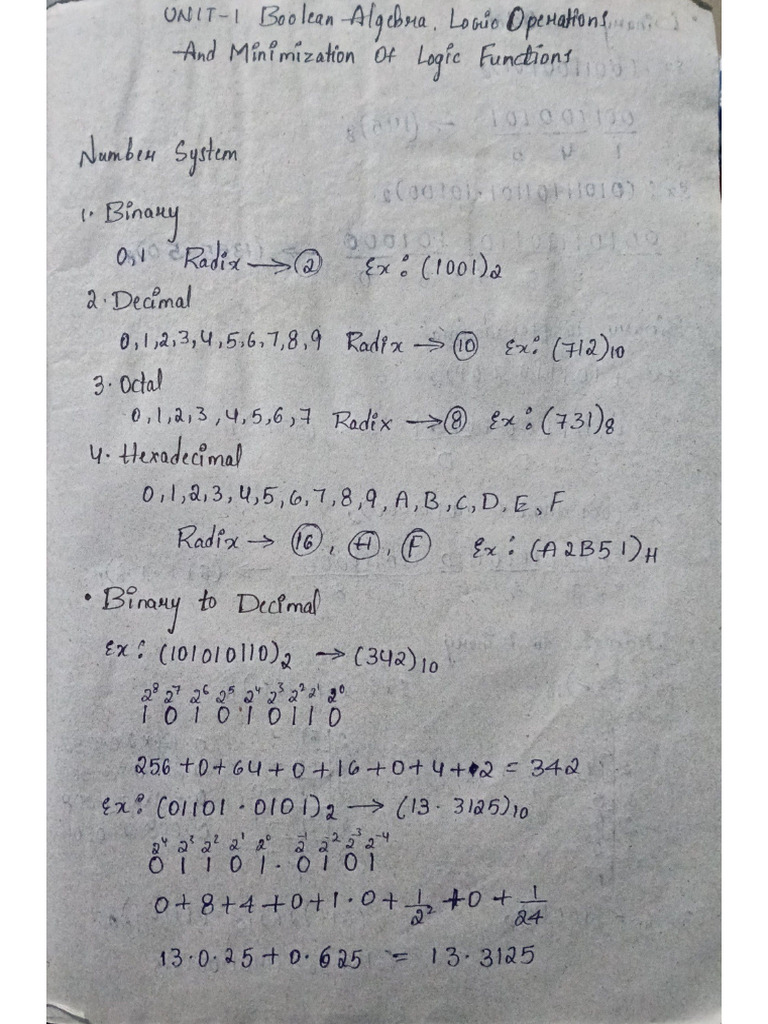 UNIT-1 Boolean Algebra, Logic Operations
And Minimization Of Logic Functions
Number System
1. Binary
0,1 Radix → 2 Ex: (1001)₂
2. Decimal
0,1,2,3,4,5,6,7,8,9 Radix → 10 Ex: (712)₁₀
3. Octal
0,1,2,3,4,5,6,7 Radix → 8 Ex: (731)₈
4. Hexadecimal
0,1,2,3,4,5,6,7,8,9,A,B,C,D,E,F
Radix → 16, H, F Ex: (A2B51)H
• Binary to Decimal
Ex: (101010110)₂ → (342)₁₀
2⁸ 2⁷ 2⁶ 2⁵ 2⁴ 2³ 2² 2¹ 2⁰
1 0 1 0 1 0 1 1 0
256+0+64+0+16+0+4+2 = 342
Ex: (01101.0101)₂ → (13.3125)₁₀
2⁴ 2³ 2² 2¹ 2⁰ 2⁻¹ 2⁻² 2⁻³ 2⁻⁴
0 1 1 0 1 . 0 1 0 1
0+8+4+0+1.0+1/2²+0+1/24
13.0.25+0.625 = 13.3125